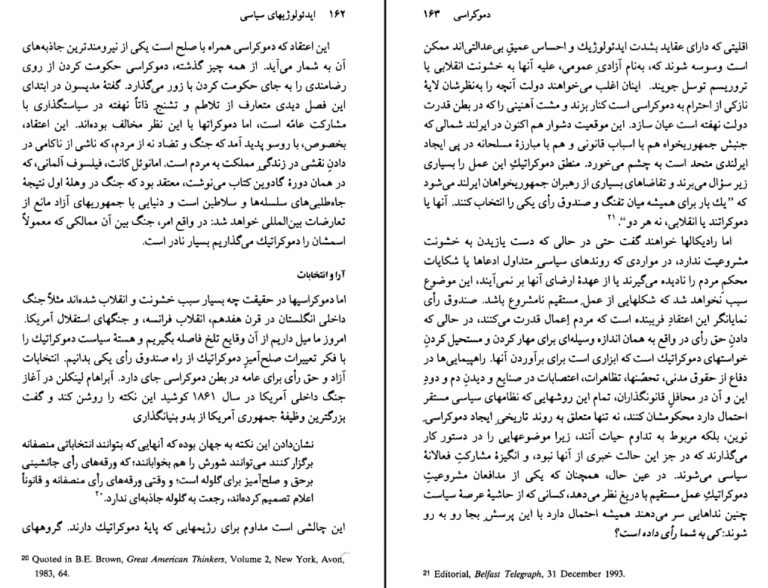 ۱۶۲ ایدئولوژیهای سیاسی
این اعتقاد که دموکراسی همراه با صلح است یکی از نیرومندترین جاذبه‌های
آن به شمار می‌آید. از همه چیز گذشته، دموکراسی حکومت کردن از روی
رضامندی را به جای حکومت کردن با زور می‌گذارد. گفتهٔ مدیسن در ابتدای
این فصل دیدی متعارف از تلاطم و تشنج ذاتاً نهفته در سیاستگذاری با
مشارکت عامّه است، اما دموکراتها با این نظر مخالف بوده‌اند. این اعتقاد،
بخصوص، با روسو پدید آمد که جنگ و تضاد نه از مردم، که ناشی از ناکامی در
دادن نقشی در زندگی مملکت به مردم است. امانوئل کانت، فیلسوف آلمانی، که
در همان دورهٔ گادوین کتاب می‌نوشت، معتقد بود که جنگ در وهلهٔ اول نتیجهٔ
جاه‌طلبی‌های سلسله‌ها و سلاطین است و دنیایی با جمهوریهای آزاد مانع از
تعارضات بین‌المللی خواهد شد: در واقع امر، جنگ بین آن ممالکی که معمولاً
اسمشان را دموکراتیك می‌گذاریم بسیار نادر است.
آرا و انتخابات
اما دموکراسیها در حقیقت چه بسیار سبب خشونت و انقلاب شده‌اند مثلاً جنگ
داخلی انگلستان در قرن هفدهم، انقلاب فرانسه، و جنگهای استقلال آمریکا.
امروز ما میل داریم از آن وقایع تلخ فاصله بگیریم و هستهٔ سیاست دموکراتیك را
با فکر تغییرات صلح‌آمیز دموکراتیك از راه صندوق رأی یکی بدانیم. انتخابات
آزاد و حق رأی برای عامه در بطن دموکراسی جای دارد. آبراهام لینکلن در آغاز
جنگ داخلی آمریکا در سال ۱۸۶۱ کوشید این نکته را روشن کند و گفت
بزرگترین وظیفهٔ جمهوری آمریکا از بدو بنیانگذاری
نشان‌دادن این نکته به جهان بوده که آنهایی که بتوانند انتخاباتی منصفانه
برگزار کنند می‌توانند شورش را هم بخوابانند؛ که ورقه‌های رأی جانشینی
برحق و صلح‌آمیز برای گلوله است؛ و وقتی ورقه‌های رأی منصفانه و قانوناً
اعلام تصمیم کرده‌اند، رجعت به گلوله جاذبه‌ای ندارد.۲۰
این چالشی است مداوم برای رژیمهایی که پایهٔ دموکراتیك دارند. گروههای
20 Quoted in B.E. Brown, Great American Thinkers, Volume 2, New York, Avon,
1983, 64.
دموکراسی ۱۶۳
اقلیتی که دارای عقاید بشدت ایدئولوژیك و احساس عمیق بی‌عدالتی‌اند ممکن
است وسوسه شوند که، به‌نام آزادی عمومی، علیه آنها به خشونت انقلابی یا
تروریسم توسل جویند. اینان اغلب می‌خواهند دولت آنچه را به‌نظرشان لایهٔ
نازکی از احترام به دموکراسی است کنار بزند و مشت آهنینی را که در بطن قدرت
دولت نهفته است عیان سازد. این موقعیت دشوار هم اکنون در ایرلند شمالی که
جنبش جمهوریخواه هم با اسباب قانونی و هم با مبارزهٔ مسلحانه در پی ایجاد
ایرلندی متحد است به چشم می‌خورد. منطق دموکراتیك این عمل را بسیاری
زیر سؤال می‌برند و تقاضاهای بسیاری از رهبران جمهوریخواهان ایرلند می‌شود
که "یك بار برای همیشه میان تفنگ و صندوق رأی یکی را انتخاب کنند. آنها یا
دموکراتند یا انقلابی، نه هر دو".۲۱
اما رادیکالها خواهند گفت حتی در حالی که دست یازیدن به خشونت
مشروعیت ندارد، در مواردی که روندهای سیاسی متداول ادعاها یا شکایات
محکم مردم را نادیده می‌گیرند یا از عهدهٔ ارضای آنها بر نمی‌آیند، این موضوع
سبب نخواهد شد که شکلهایی از عمل مستقیم نامشروع باشد. صندوق رأی
نمایانگر این اعتقاد فریبنده است که مردم اِعمال قدرت می‌کنند، در حالی که
دادن حق رأی در واقع به همان اندازه وسیله‌ای برای مهار کردن و مستحیل کردن
خواستهای دموکراتیك است که ابزاری است برای برآوردن آنها. راهپیمایی‌ها در
دفاع از حقوق مدنی، تحصّنها، تظاهرات، اعتصابات در صنایع و دیدن دم و دود
این و آن در محافل قانونگذاران، تمام این روشهایی که نظامهای سیاسی مستقر
احتمال دارد محکومشان کنند، نه تنها متعلق به روند تاریخی ایجاد دموکراسی
نوین، بلکه مربوط به تداوم حیات آنند، زیرا موضوعهایی را در دستور کار
می‌گذارند که در جز این حالت خبری از آنها نبود، و انگیزهٔ مشارکت فعالانهٔ
سیاسی می‌شوند. در عین حال، همچنان که یکی از مدافعان مشروعیت
دموکراتیك عمل مستقیم با دریغ نظر می‌دهد، کسانی که از حاشیهٔ عرصهٔ سیاست
چنین نداهایی سر می‌دهند همیشه احتمال دارد با این پرسش بجا رو به رو
شوند: کی به شما رأی داده است؟
21 Editorial, Belfast Telegraph, 31 December 1993.